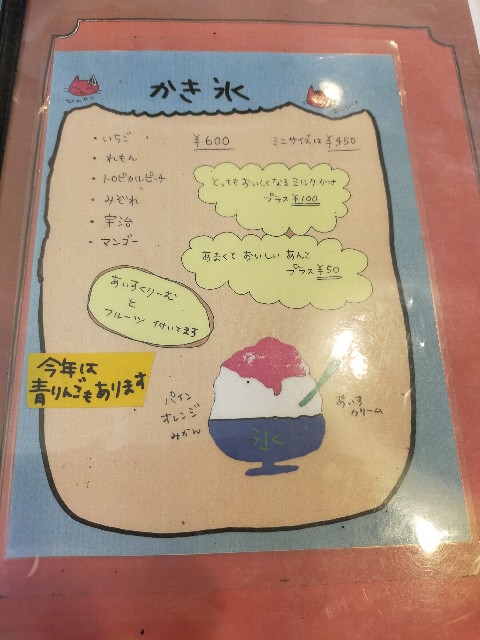 かき氷
・いちご ¥600 ミニサイズは¥450
・れもん
・トロピカルピーチ
・みぞれ
・宇治
・マンゴー
とってもおいしくなるミルクかけ
プラス¥100
あまくておいしいあんこ
プラス¥50
あいすくりーむ
と
フルーツ 付いてます
今年は
青りんごもあります
パイン
オレンジ
みかん
氷
あいす
クリーム